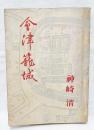 會津籠城
神崎清